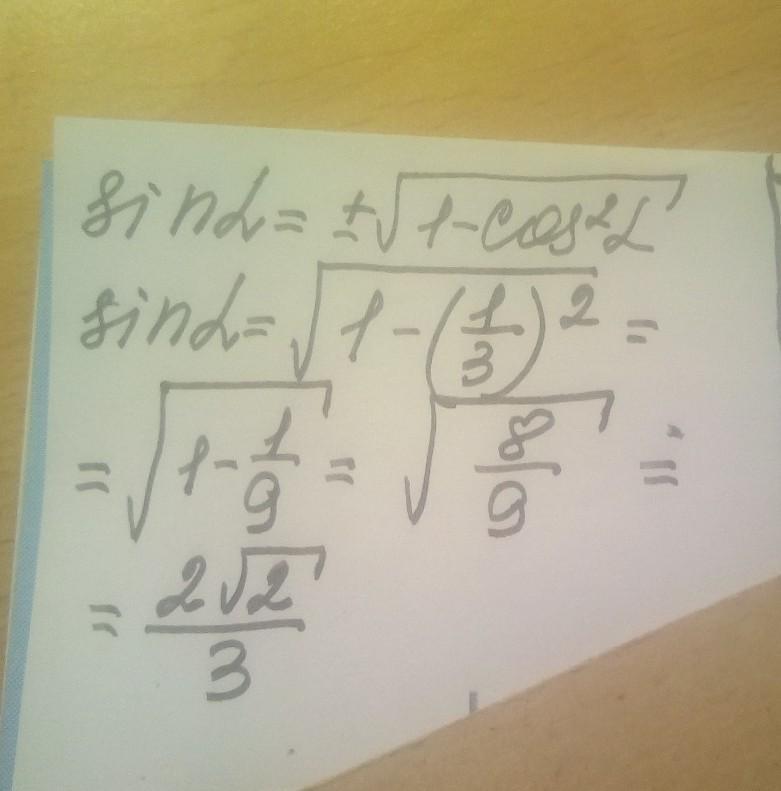 sinα = ±√(1-cos²α)
sinα = √(1-(1/3)²) =
= √(1-1/9) = √(8/9) =
= 2√2/3